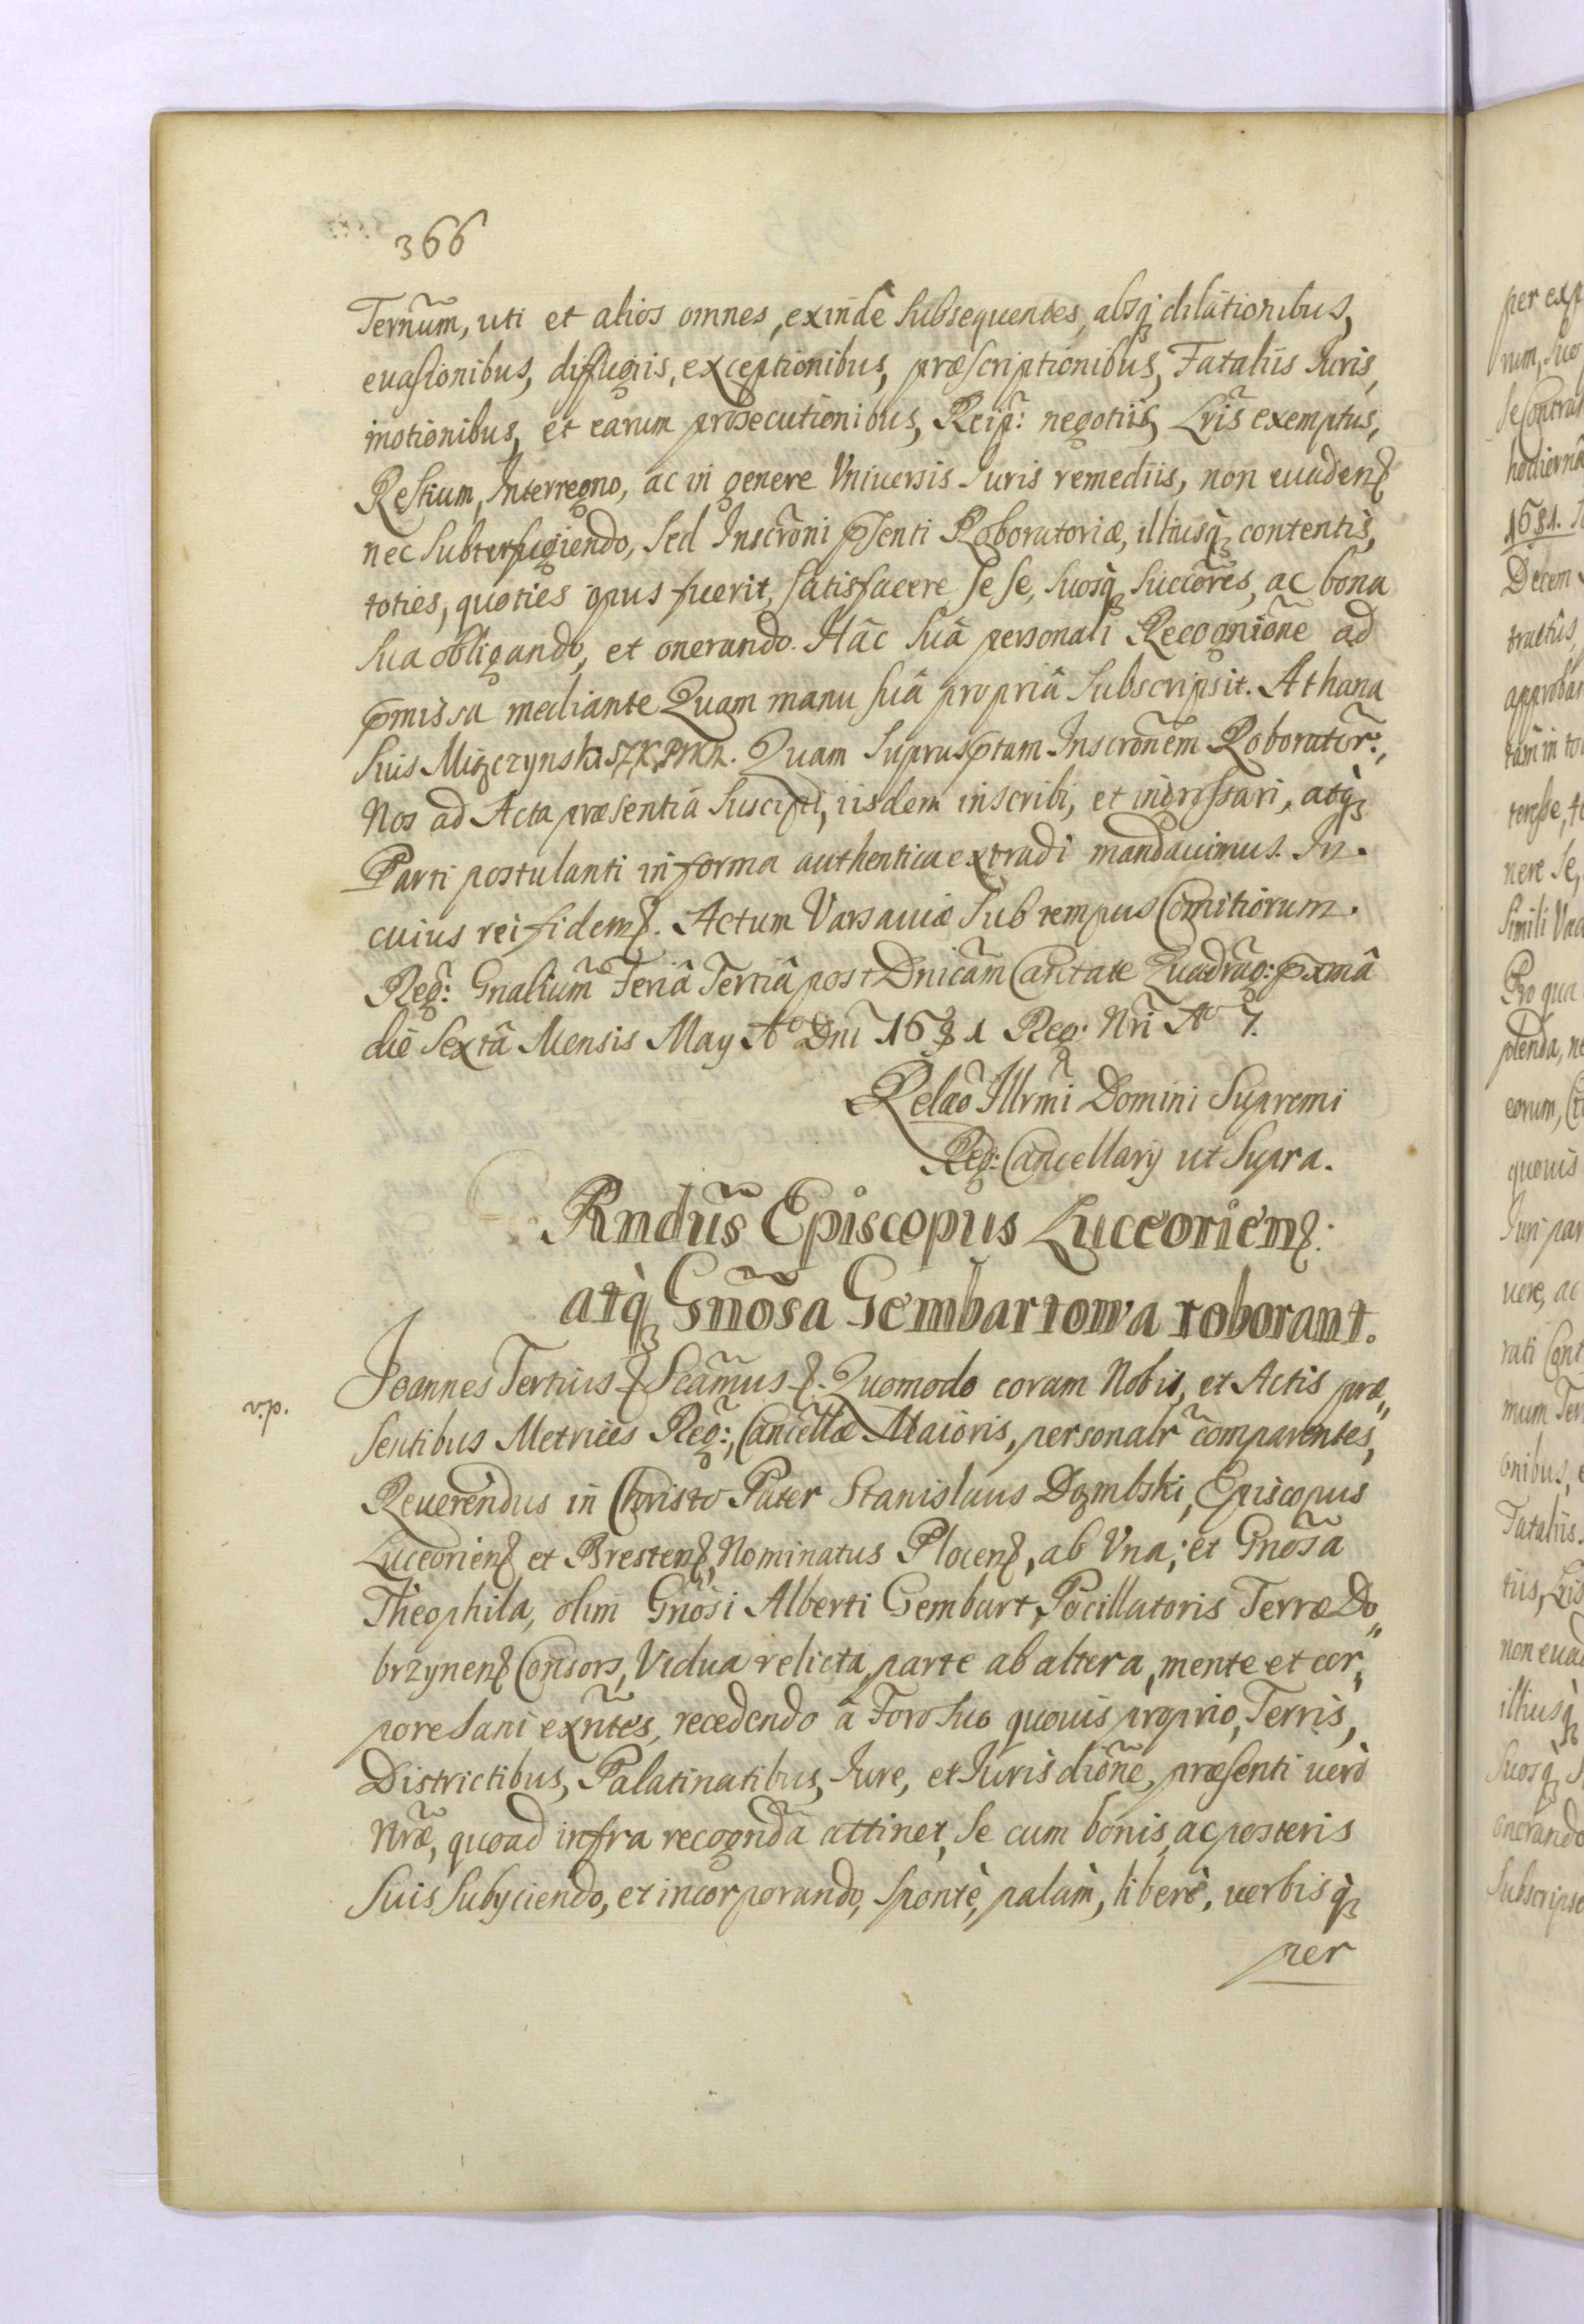 366
Ternum̃, uti et alios omnes, exindè subsequentes, absq; dilationibus,
euasionibus, diffugiis, exceptionibus, præscriptionibus, Fataliis Iuris,
motionibus, et earum prosecutionibus, Reip̃: negotiis, Lris̃ exemptus,
Restium, Interregno, ac in genere Vniuersis Iuris remediis, non euadenꝭ
nec subterfugiendo, sed Inscr̃oni p̃senti Roboratoriæ, illiusq; contentis,
toties, quoties opus fuerit, satisfacere se se, suosq; succõres, ac bona
sua obligando, et onerando. Hâc suâ personali Recogniõne ad
p̃missa mediante Quam manu suâ propriâ subscripsit. Athana
sius Miączynski SZKPMK. Quam supruscp̃tam Inscrõnem Roborator̃:,
Nos ad Acta præsentia suscipi, iisdem inscribi, et ingrossari, atq;
Parti postulanti in forma authentica extradi mandauimus. In
cuius rei fidemꝭ. Actum Varsauiæ sub tempus Comitiorum
Reg̃: Gñalium Feriâ Tertiâ post Dnicãm Cantate Quadrag̃: p̃xmâ
die Sextâ Mensis May Aº Dni 1681 Reg: Nr̃i Aº 7.
Relaõ Illr̃mi Domini Supremi
Reg: Cancellarij ut supra.
Rndũs Episcopus Luceorienꝭ:
atq; Gnõsa Gembartowa roborant.
v.p.
Joannes Tertius ꝭ Scãmus ꝭ. Quomodo coram Nobis, et Actis præ„
sentibus Metrices Reg̃:, Cancellæ̃ Maioris, personalr̃ comparentes,
Reuerendus in Christo Pater Stanislaus Dąmbski, Episcopus
Luceorienꝭ et Brestenꝭ, Nominatus Plocenꝭ, ab Vna; et Gnõsa
Theophila, olim Gnõsi Alberti Gembart, Pocillatoris Terræ Do„
brzynenꝭ Consors, Vidua relicta, parte ab altera, mente et cor„
pore sani exñtes, recedendo â Foro suo quouis proprio, Terris,
Districtibus, Palatinatibus, Iure, et Iurisdiõne, præsenti uerò
Nr̃æ, quoad infra recogñda attinet, se cum bonis, ac posteris
suis subyciendo, et incorporando, spontè, palàm, liberè, uerbisq;
per